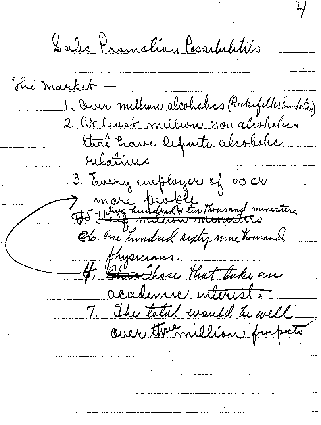 4
Sales Promotion Possibilities
The Market —
1. Over million alcoholics (Rockefeller
2. At least million non alcoholics
that have definite alcoholic
relatives
3. Every employer of 100 or
more people
five hundred & ten thousand ministers
6. one hundred sixty nine thousand
physicians.
4. Those that take an
academic interest.
7. The total would be well
over three million prospects